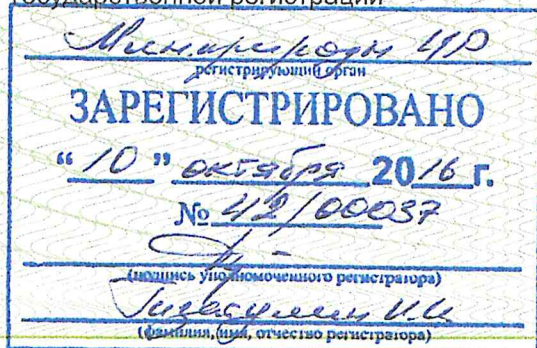 государственной регистрации
Минприроды ЧР
регистрирующий орган
ЗАРЕГИСТРИРОВАНО
“10” октября 2016 г.
№ 42/00037
(подпись уполномоченного регистратора)
И.И.
(фамилия, имя, отчество регистратора)